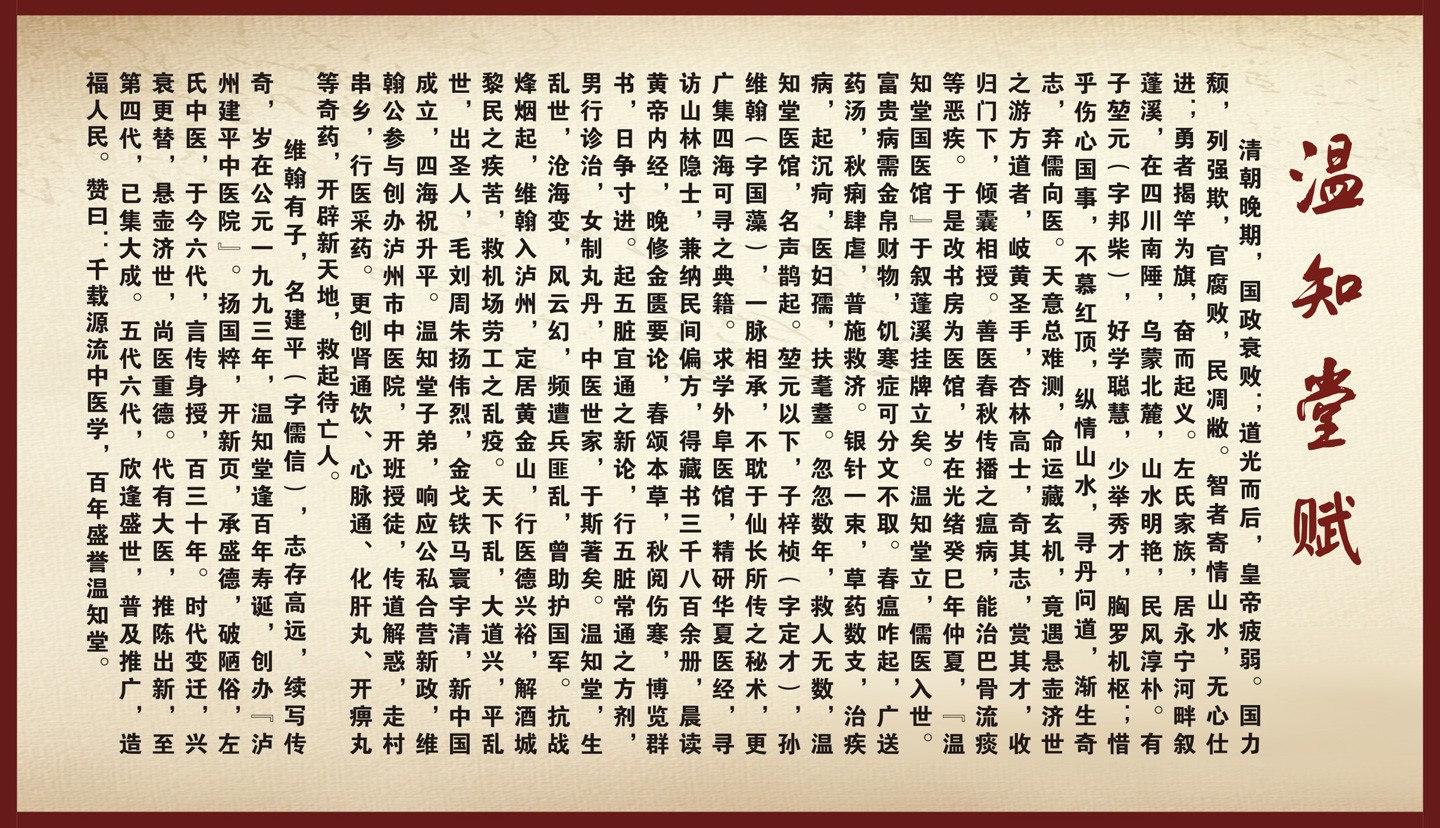 温知堂赋
清朝晚期，国政衰败；道光而后，皇帝疲弱。国力
颓，列强欺，官腐败，民凋敝。智者寄情山水，无心仕
进；勇者揭竿为旗，奋而起义。左氏家族，居永宁河畔叙
蓬溪，在四川南陲，乌蒙北麓，山水明艳，民风淳朴。有
子堃元（字邦柴），好学聪慧，少举秀才，胸罗机枢；惜
乎伤心国事，不慕红顶，纵情山水，寻丹问道，渐生奇
志，弃儒向医。天意总难测，命运藏玄机，竟遇悬壶济世
之游方道者，岐黄圣手，杏林高士，奇其志，赏其才，收
归门下，倾囊相授。善医春秋传播之瘟病，能治巴骨流痰
等恶疾。于是改书房为医馆，岁在光绪癸巳年仲夏，『温
知堂国医馆』于叙蓬溪挂牌立矣。温知堂立，儒医入世。
富贵病需金帛财物，饥寒症可分文不取。春瘟咋起，广送
药汤，秋痢肆虐，普施救济。银针一束，草药数支，治疾
病，起沉疴，医妇孺，扶耄耋。忽忽数年，救人无数，温
知堂医馆，名声鹊起。堃元以下，子梓桢（字定才），孙
维翰（字国藻），一脉相承，不耽于仙长所传之秘术，更
广集四海可寻之典籍。求学外阜医馆，精研华夏医经，寻
访山林隐士，兼纳民间偏方，得藏书三千八百余册，晨读
黄帝内经，晚修金匮要论，春颂本草，秋阅伤寒，博览群
书，日争寸进。起五脏宜通之新论，行五脏常通之方剂，
男行诊治，女制丸丹，中医世家，于斯著矣。温知堂，生
乱世，沧海变，风云幻，频遭兵匪乱，曾助护国军。抗战
烽烟起，维翰入泸州，定居黄金山，行医德兴裕，解酒城
黎民之疾苦，救机场劳工之乱疫。天下乱，大道兴，平乱
世，出圣人，毛刘周朱扬伟烈，金戈铁马寰宇清，新中国
成立，四海祝升平。温知堂子弟，响应公私合营新政，维
翰公参与创办泸州市中医院，开班授徒，传道解惑，走村
串乡，行医采药。更创肾通饮、心脉通、化肝丸、开痹丸
等奇药，开辟新天地，救起待亡人。
维翰有子，名建平（字儒信），志存高远，续写传
奇，岁在公元一九九三年，温知堂逢百年寿诞，创办『泸
州建平中医院』。扬国粹，开新页，承盛德，破陋俗，左
氏中医，于今六代，言传身授，百三十年。时代变迁，兴
衰更替，悬壶济世，尚医重德。代有大医，推陈出新，至
第四代，已集大成。五代六代，欣逢盛世，普及推广，造
福人民。赞曰：千载源流中医学，百年盛誉温知堂。